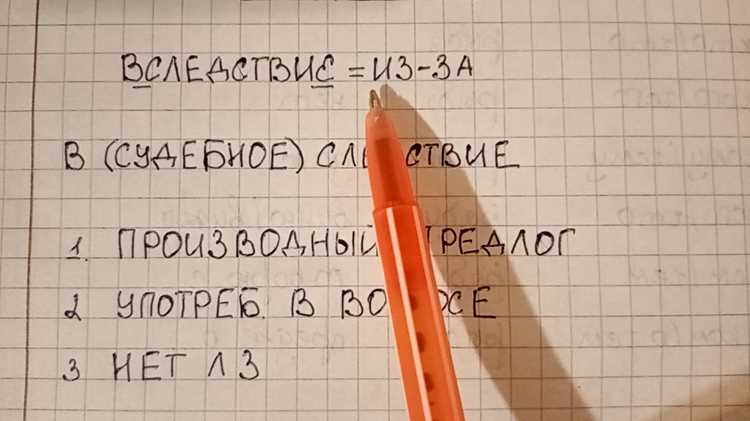 ВСЛЕДСТВИЕ = ИЗ-ЗА
В (СУДЕБНОЕ) СЛЕДСТВИЕ
1. ПРОИЗВОДНЫЙ ПРЕДЛОГ
2 УПОТРЕБ. В ВОПРОСЕ
3 НЕТ Л З